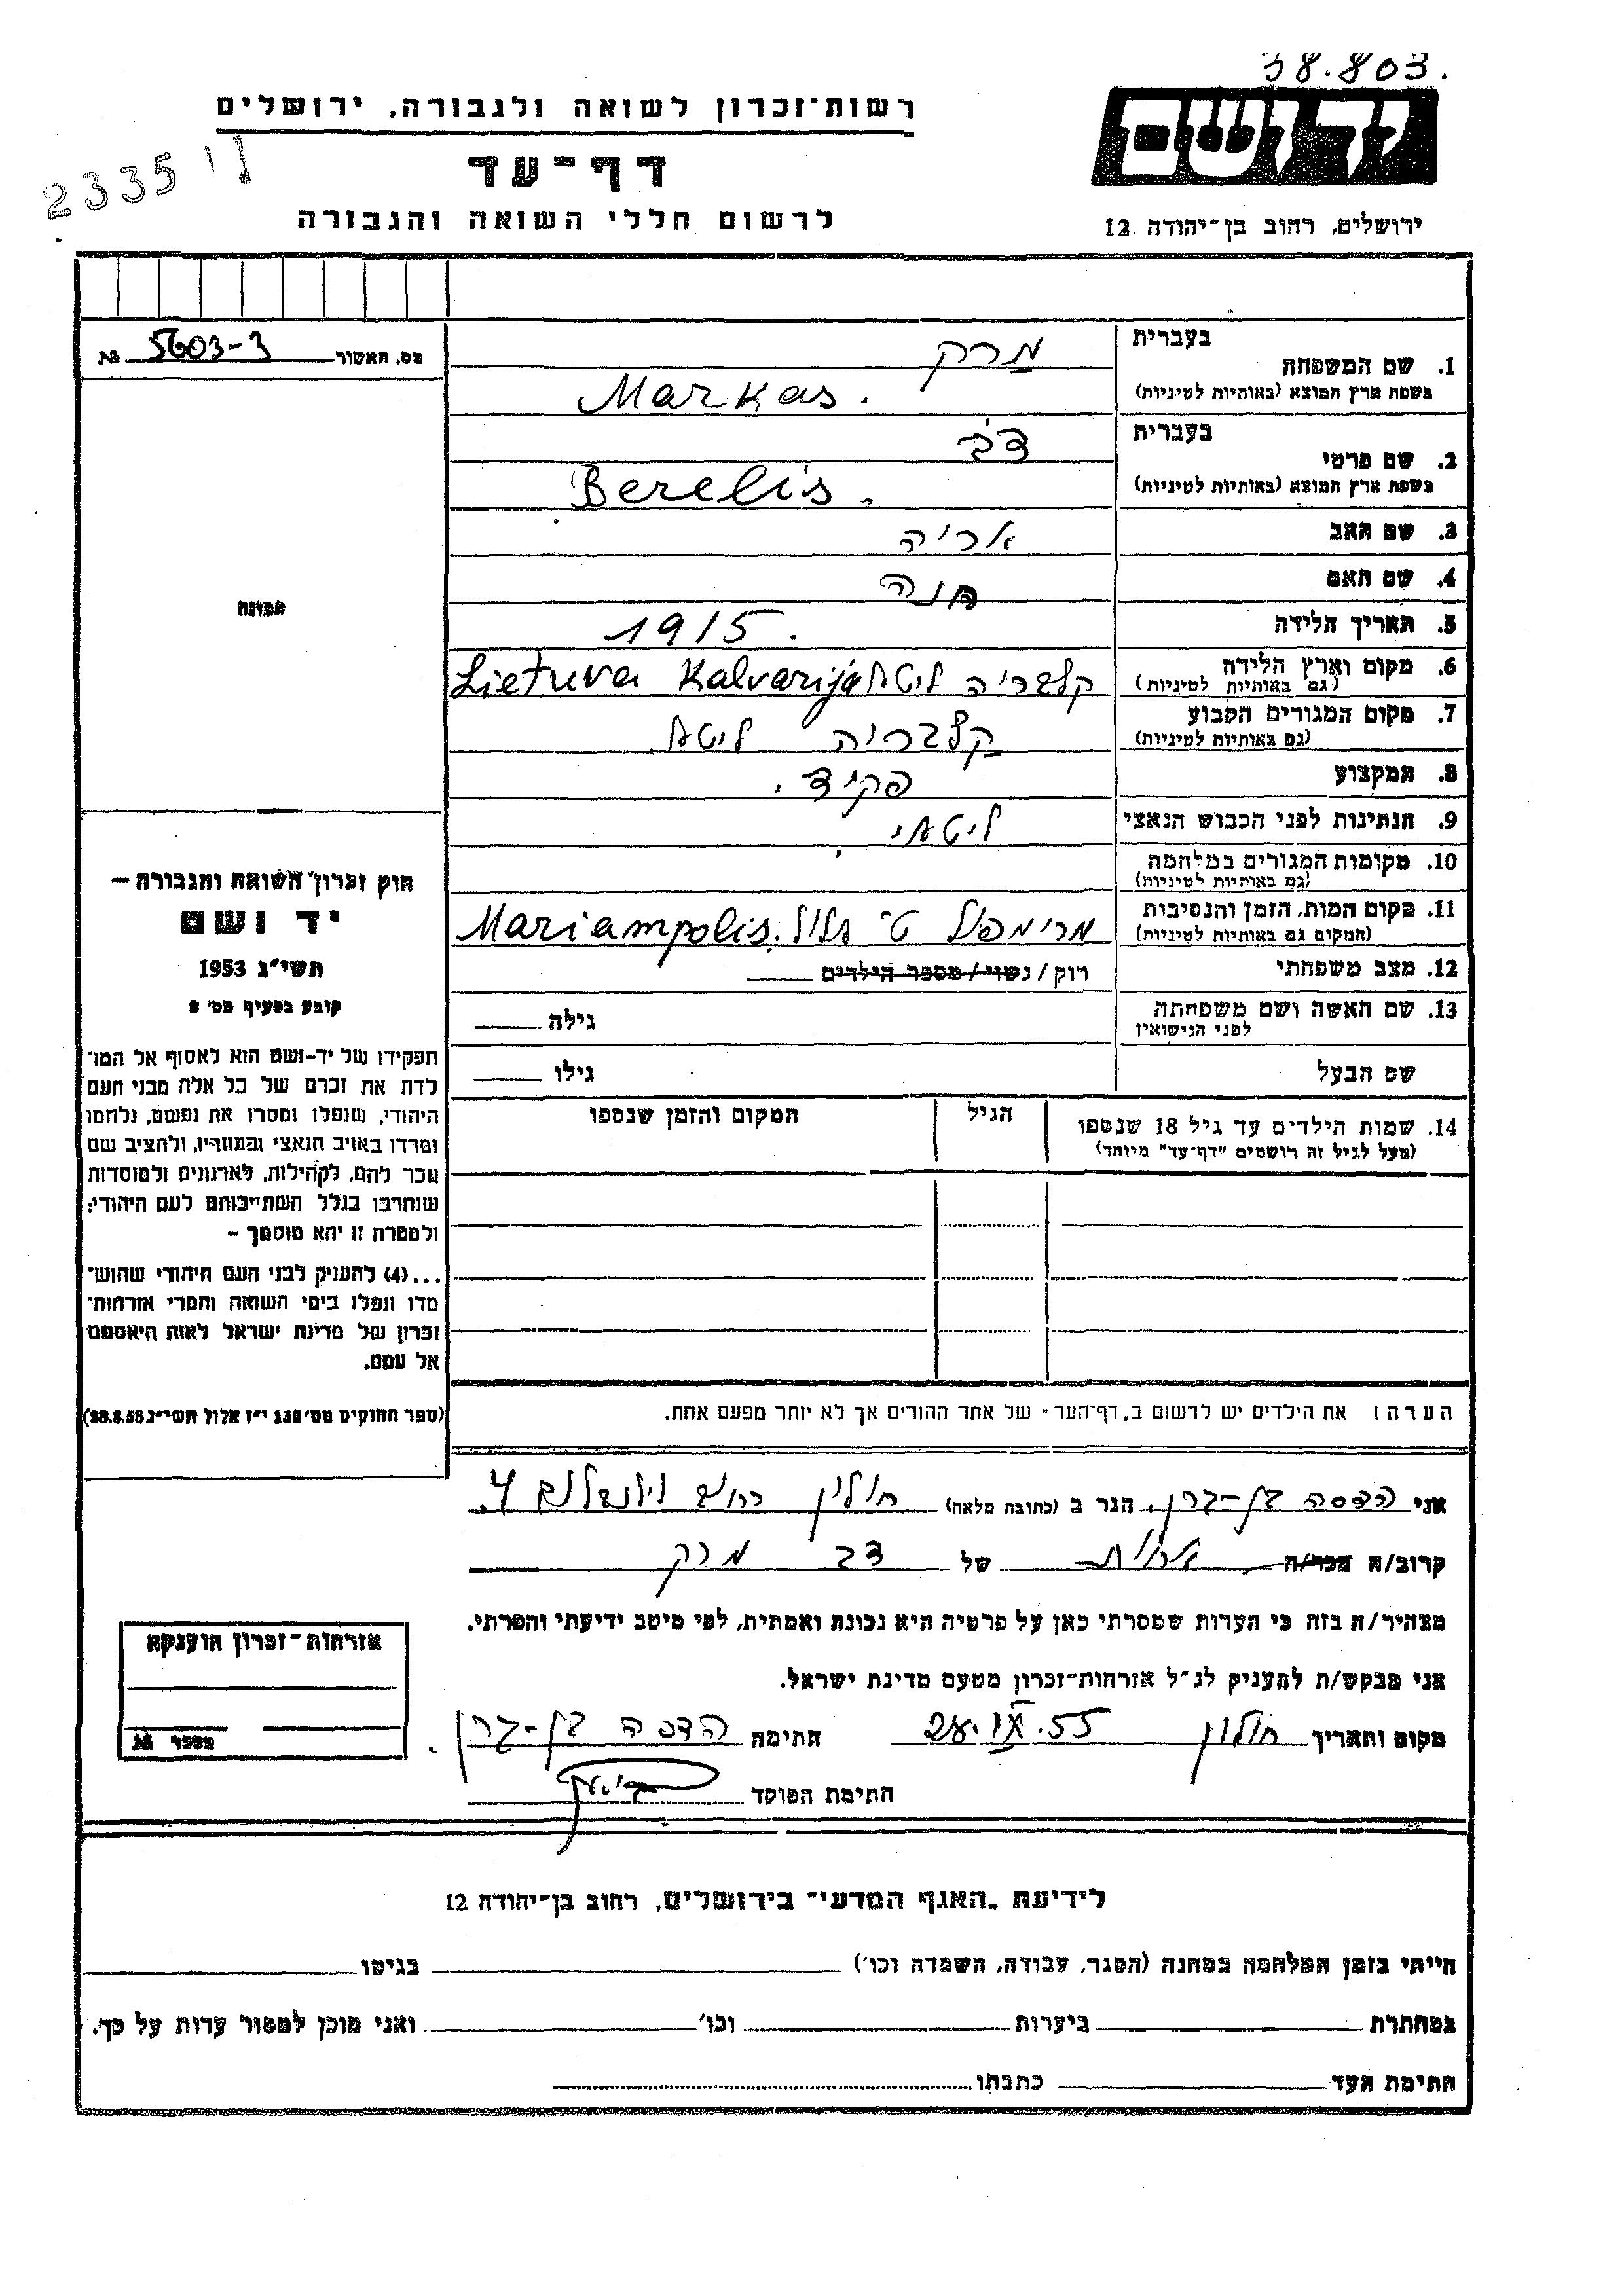 38.803.
יד ושם
ירושלים, רחוב בן-יהודה 12
רשות-זכרון לשואה ולגבורה, ירושלים
דף-עד
לרשום חללי השואה והגבורה
2335
מס. האשור 5603-3 №
תמונה
חוק זכרון השואה והגבורה –
יד ושם
תשי"ג 1953
קובע בסעיף מס' 2
תפקידו של יד-ושם הוא לאסוף אל המו־
לדת את זכרם של כל אלה מבני העם
היהודי, שנפלו ומסרו את נפשם, נלחמו
ומרדו באויב הנאצי ובעוזריו, ולהציב שם
וזכר להם, לקהילות, לארגונים ולמוסדות
שנחרבו בגלל השתייכותם לעם היהודי;
ולמטרה זו יהא מוסמך –
...(4) להעניק לבני העם היהודי שהוש־
מדו ונפלו בימי השואה והמרי אזרחות־
זכרון של מדינת ישראל לאות היאספם
אל עמם.
(ספר החוקים מס' 132 י"ז אלול תשי"ג 28.8.53)
בעברית מרק
1. שם המשפחה
בשפת ארץ המוצא (באותיות לטיניות) Markas.
בעברית דב
2. שם פרטי
בשפת ארץ המוצא (באותיות לטיניות) Berelis.
3. שם האב אריה
4. שם האם חנה
5. תאריך הלידה 1915.
6. מקום וארץ הלידה קלבריה ליטא Lietuva Kalvarija
(גם באותיות לטיניות)
7. מקום המגורים הקבוע קלבריה ליטא.
(גם באותיות לטיניות)
8. המקצוע פקיד.
9. הנתינות לפני הכבוש הנאצי ליטאי.
10. מקומות המגורים במלחמה
(גם באותיות לטיניות)
11. מקום המות, הזמן והנסיבות מרימפול ט' אלול. Mariampolis
(המקום גם באותיות לטיניות)
12. מצב משפחתי רוק / נשוי / מספר הילדים
13. שם האשה ושם משפחתה גילה
לפני הנישואין
שם הבעל גילו
14. שמות הילדים עד גיל 18 שנספו הגיל המקום והזמן שנספו
(מעל לגיל זה רושמים "דף-עד" מיוחד)
הערה: את הילדים יש לרשום ב"דף-העד" של אחד ההורים אך לא יותר מפעם אחת.
אני הדסה בן-גרן, הגר ב (כתובת מלאה) חולון רחוב 4.
קרוב/ה מכר/ה אחות של דב מרק
מצהיר/ה בזה כי העדות שמסרתי כאן על פרטיה היא נכונה ואמתית, לפי מיטב ידיעתי והכרתי.
אני מבקש/ת להעניק לנ"ל אזרחות-זכרון מטעם מדינת ישראל.
מקום ותאריך חולון 55 חתימה הדסה בן-גרן.
חתימת הפוקד
אזרחות-זכרון הוענקה
מספר №
לידיעת "האגף המדעי" בירושלים, רחוב בן-יהודה 12
הייתי בזמן המלחמה במחנה (הסגר, עבודה, השמדה וכו') בגיטו
במחתרת ביערות וכו' ואני מוכן למסור עדות על כך.
חתימת העד כתבתו